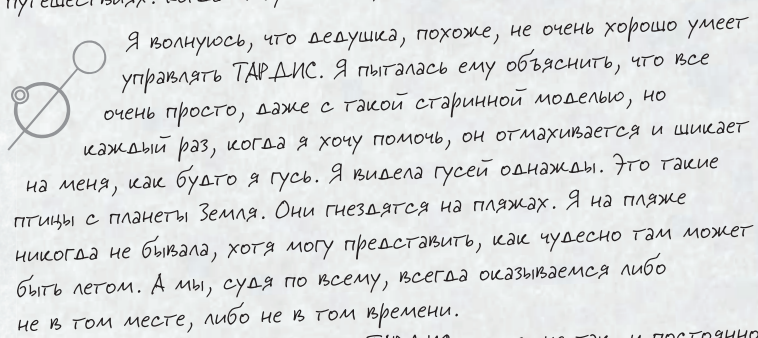 Я волнуюсь, что дедушка, похоже, не очень хорошо умеет
управлять ТАРДИС. Я пыталась ему объяснить, что все
очень просто, даже с такой старинной моделью, но
каждый раз, когда я хочу помочь, он отмахивается и шикает
на меня, как будто я гусь. Я видела гусей однажды. Это такие
птицы с планеты Земля. Они гнездятся на пляжах. Я на пляже
никогда не бывала, хотя могу представить, как чудесно там может
быть летом. А мы, судя по всему, всегда оказываемся либо
не в том месте, либо не в том времени.